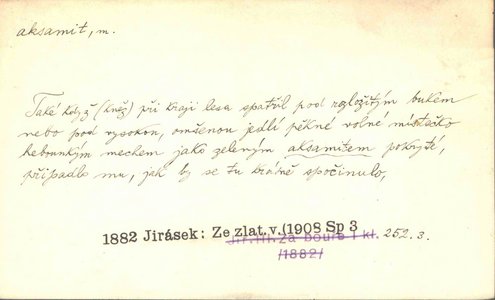 aksamit, m.
Také když (kněz) při kraji lesa spatřil pod rozložitým bukem
nebo pod vysokou, omšenou jedlí pěkné volné místečko
hebounkým mechem jako zeleným aksamitem pokryté,
připadlo mu, jak by se tu krásně spočinulo,
1882 Jirásek: Ze zlat. v. (1908 Sp 3
Jir. Hl. Za bouře I kl. 252. 3.
/1882/